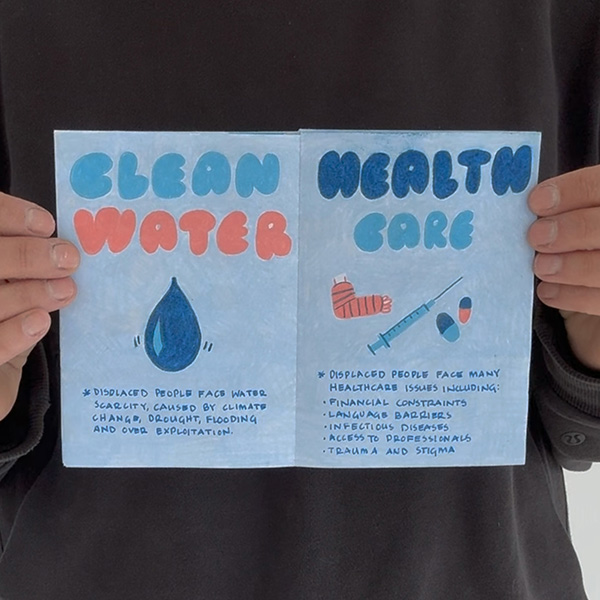 CLEAN
WATER
* DISPLACED PEOPLE FACE WATER
SCARCITY, CAUSED BY CLIMATE
CHANGE, DROUGHT, FLOODING
AND OVER EXPLOITATION.
HEALTH
CARE
* DISPLACED PEOPLE FACE MANY
HEALTHCARE ISSUES INCLUDING:
· FINANCIAL CONSTRAINTS
· LANGUAGE BARRIERS
· INFECTIOUS DISEASES
· ACCESS TO PROFESSIONALS
· TRAUMA AND STIGMA